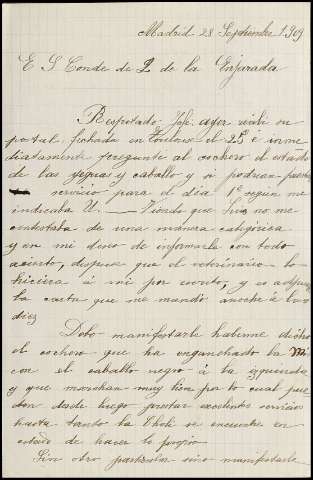 Madrid 28 Septiembre 1909
E S Conde de P de la Enjarada
Respetado Jefe: ayer recibi su
postal fechada en Toulouse el 25 é inme
diatamente pregunté al cochero el estado
de las yeguas y caballo y si podrian prestar
servicio para el dia 1º segun me
indicaba U. Viendo que no me
contestaba de una manera categórica
y en mi deseo de informarle con todo
acierto, dispuse que el veterinario lo
hiciera á mi por escrito, y es adjunta
la carta que me mandó anoche á las
diez
Debo manifestarle haberme dicho
el cochero que ha enganchado la
con el caballo negro á la izquierda
y que marchan muy bien por lo cual pue
den desde luego prestar excelentes servicios
hasta tanto la se encuentre en
estado de hacer lo propio
Sin otro particular sino manifestarle